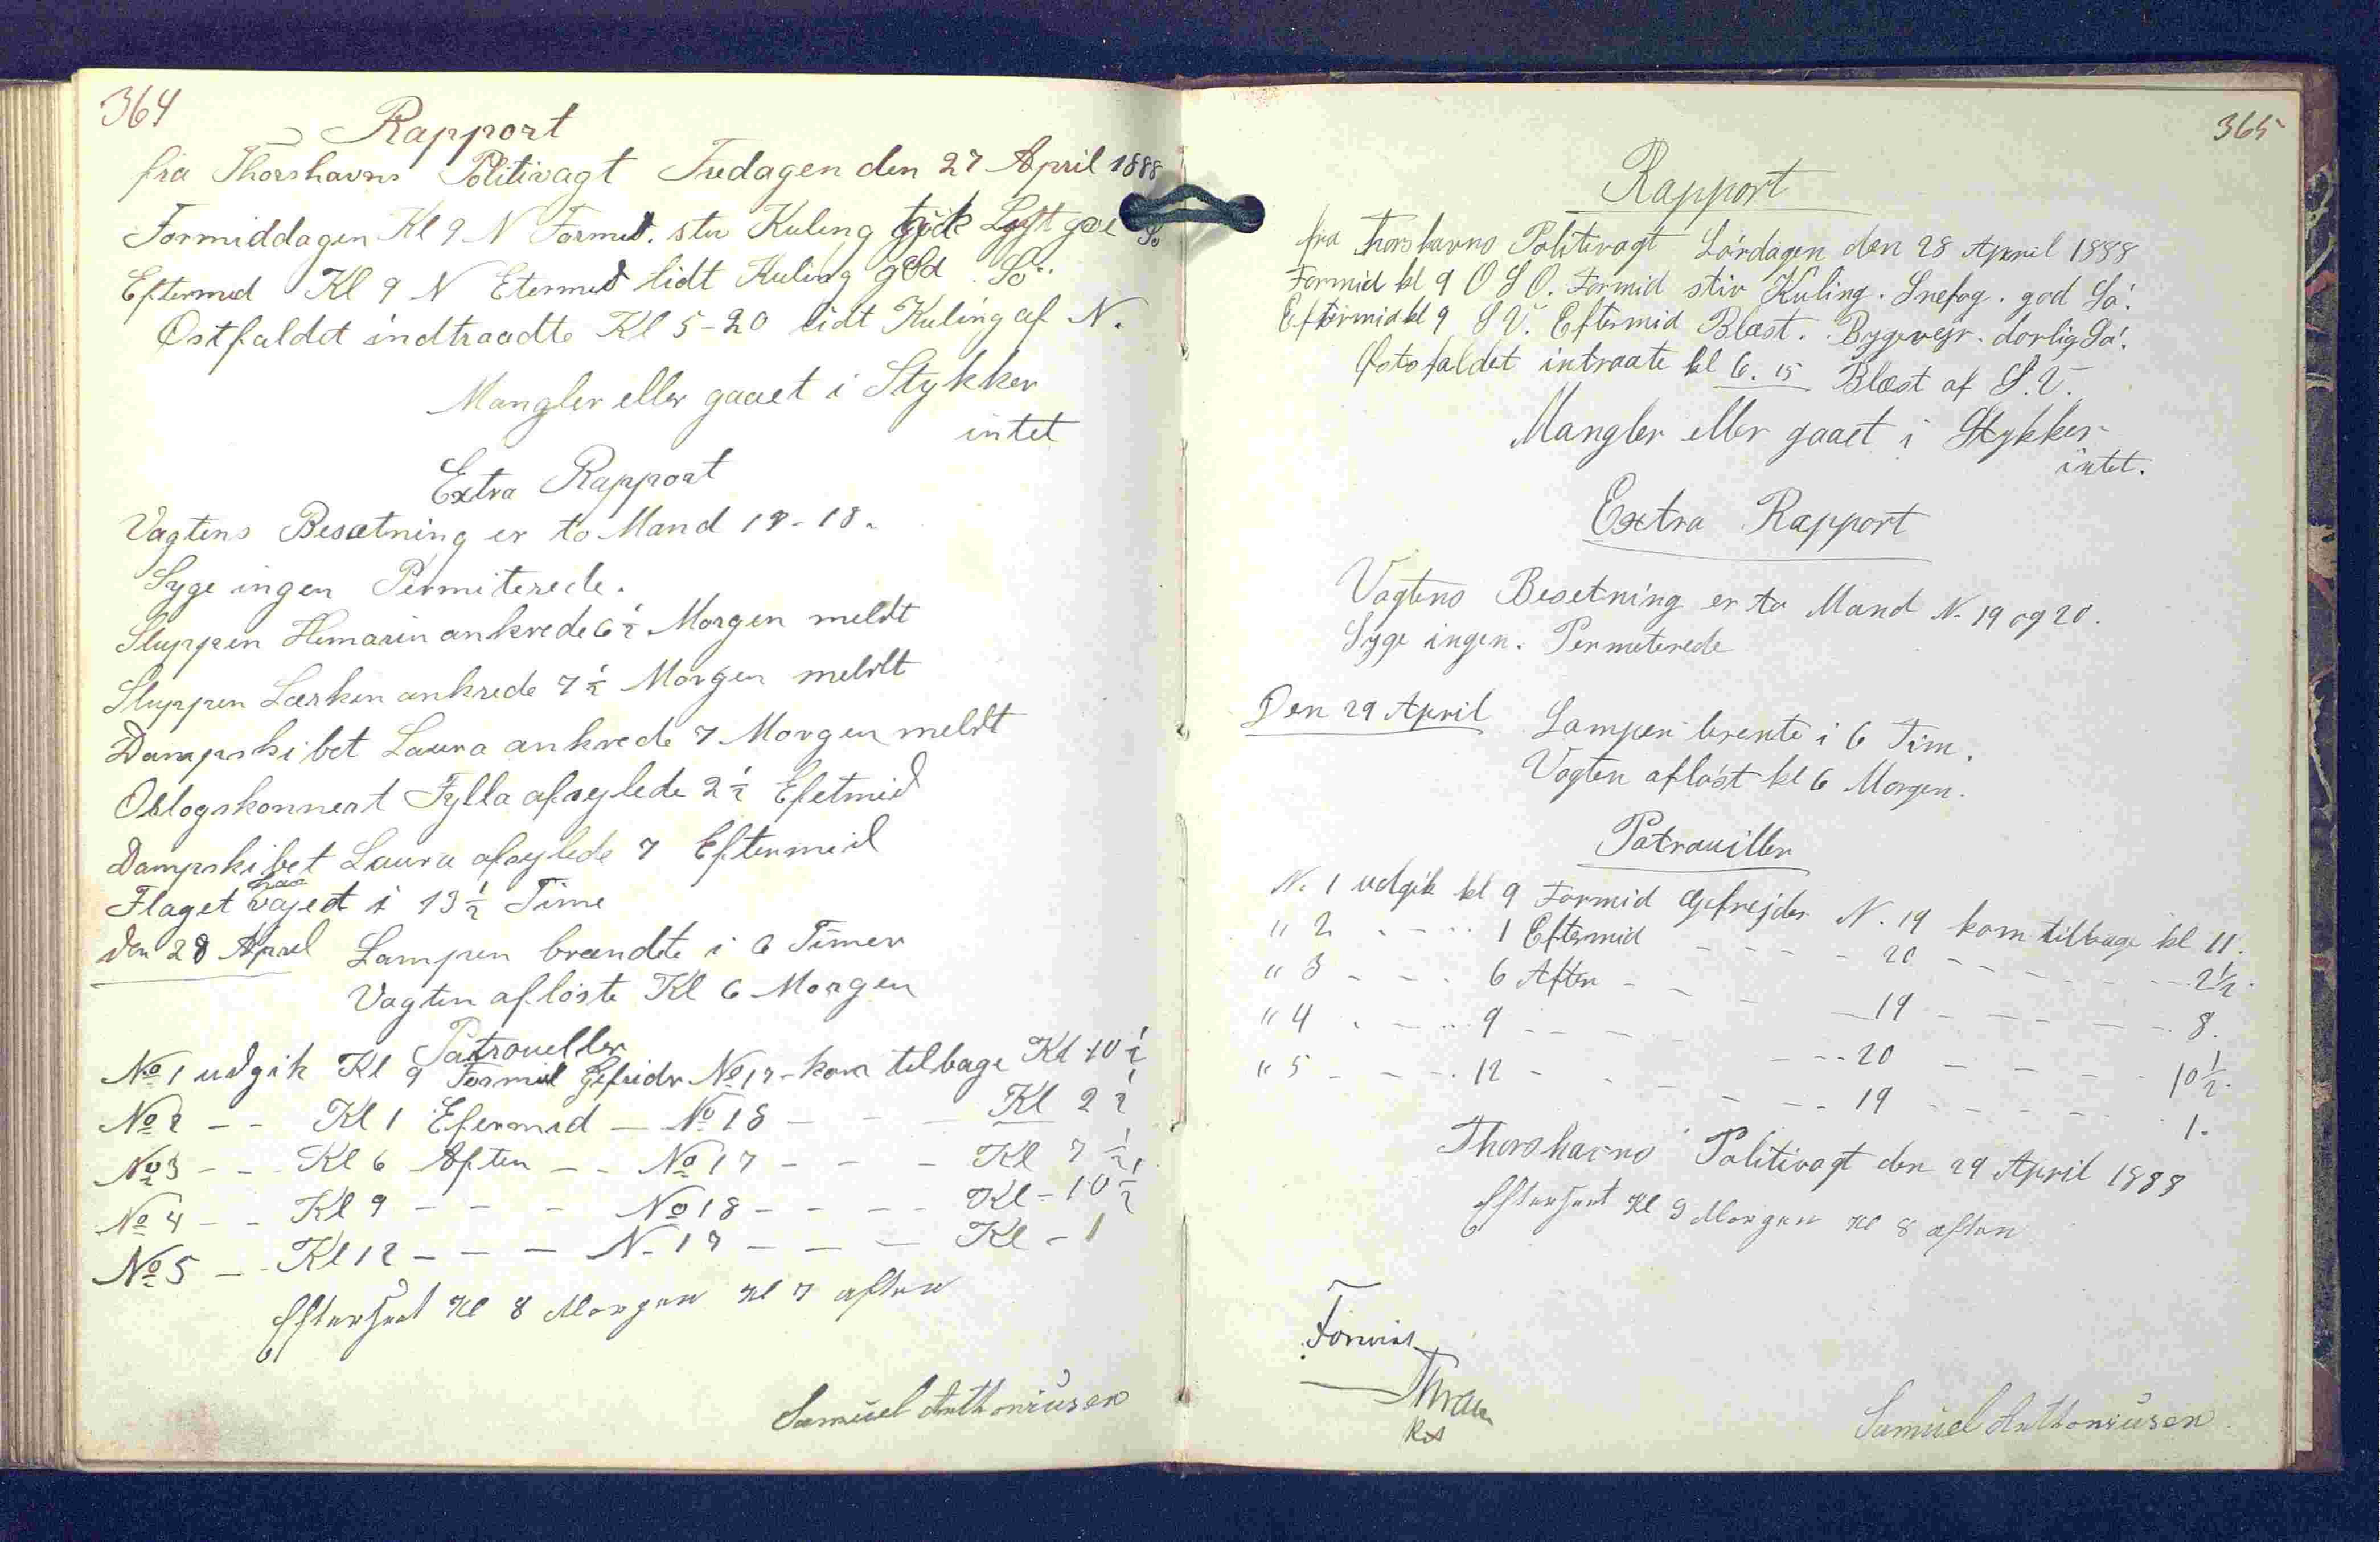 364
Rapport
fra Thorshavns Politivagt Fredagen den 27 April 1888
Formiddagen Kl 9 N Formid. stiv Kuling tyk Lyft god So
Eftermed Kl 9 N Etermed lidt Kuling god So
Østfaldet indtraadte Kl 5-20 lidt Kuling af N.
Mangler eller gaaet i Stykker
intet
Extra Rapport
Vagtens Besætning er to Mand 17-18.
Syge ingen Permiterede.
Sluppen Hemarin ankrede 6 1/2 Morgen meldt
Sluppen Lærken ankrede 7 1/2 Morgen meldt
Dampskibet Laura ankrede 7 Morgen meldt
Oblogskonnert Fylla afsylede 2 1/2 Efetmid
Dampskibet Laura afsylede 7 Eftermid
Flaget har vajet i 13 1/2 Time
den 28 April Lampen brændte i 6 Timer
Vagten afløste Kl 6 Morgen
Patroueller
No 1 udgik Kl 9 Formid Gefridr No 17 - kom tilbage Kl 10 1/2
No 2 - - Kl 1 Efermed - No 18 - - - Kl 2 1/2
No 3 - - Kl 6 Aften - - No 17 - - - Kl 7 1/2
No 4 - - Kl 9 - - - No 18 - - - Kl - 10 1/2
No 5 - Kl 12 - - - N- 17 - - - Kl - 1
Efterseet Kl 8 Morgen Kl 7 aften
Samuel Anthoniusen
365
Rapport
fra Thorshavns Politivagt Lørdagen den 28 April 1888
Formid kl 9 O S O. Formid stiv Kuling. Snefog. god Sø.
Eftermid kl 9 S V. Eftermid Blæst. Bygevejr. dorlig Sø.
Østsfaldet intraate kl 6. 15 Blæst af S.V.
Mangler eller gaaet i Stykker
intet.
Extra Rapport
Vagtens Besetning er to Mand N. 19 og 20.
Syge ingen. Permeterede
Den 29 April Lampen brente i 6 Tim.
Vagten afløst kl 6 Morgen.
Patrouiller
N. 1 udgik kl 9 Formid Gefrejder N. 19 kom tilbage kl 11.
" 2 - - - 1 Eftermid - - - - 20 - - - - - 2 1/2.
" 3 - - - 6 Aften - - - 19 - - - - - 8.
" 4 - - - 9 - - - - - 20 - - - - 10 1/2.
" 5 - - - 12 - - - - - 19 - - - - 1.
Thorshavns Politivagt den 29 April 1888
Efterseet Kl 9 Morgen Kl 8 aften
Forevist
Samuel Anthoniusen